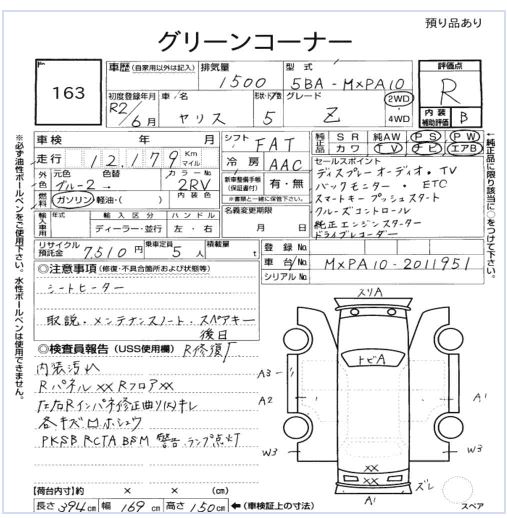 預り品あり
グリーンコーナー
No 163
車歴 (自家用以外は記入) 排気量 1500 型式 5BA-MXPA10 評価点 R
初度登録年月 R2/6月 車名 ヤリス 形状・ドア数 5 グレード Z 2WD 4WD 内装補助評価 B
車検 年 月 シフト FAT 純正品 SR 純AW PS PW
カワ TV ナビ エアB
走行 12,179 Km マイル 冷房 AAC
外色 元色 ブルー2 → 色替 カラーNo 2RV
燃料 ガソリン 軽油・( )
新車整備手帳(保証書付) 有・無
※書類と一緒に保管下さい。
輸入車用 年式 輸入区分 ディーラー・並行 ハンドル 左・右
名義変更期限 月 日
リサイクル預託金 7,510円 乗車定員 5人 積載量 t
セールスポイント
ディスプレーオーディオ・TV
バックモニター・ETC
スマートキープッシュスタート
クルーズコントロール
純正エンジンスターター
ドライブレコーダー
登録No
車台No MXPA10-2011951
シリアルNo
◎注意事項 (修復・不具合箇所および状態等)
シートヒーター
取説・メンテナンスノート・スペアキー
後日
◎検査員報告 (USS使用欄) R修復厂
内装汚れ
Rパネル XX Rフロア XX
左右Rインパネ修正曲り(内)キレ
各キズ
PKSB RCTA BSM 警告ランプ点灯
【荷台内寸】約 × × (cm)
長さ 394cm 幅 169cm 高さ 150cm ←(車検証上の寸法)
スリA
トビA
A3
A2
A1
W3
W3
XX
XX
A1
ズレ
スペア
※必ず油性ボールペンをご使用下さい。水性ボールペンは使用できません。
←純正品に限り該当に○をつけて下さい。